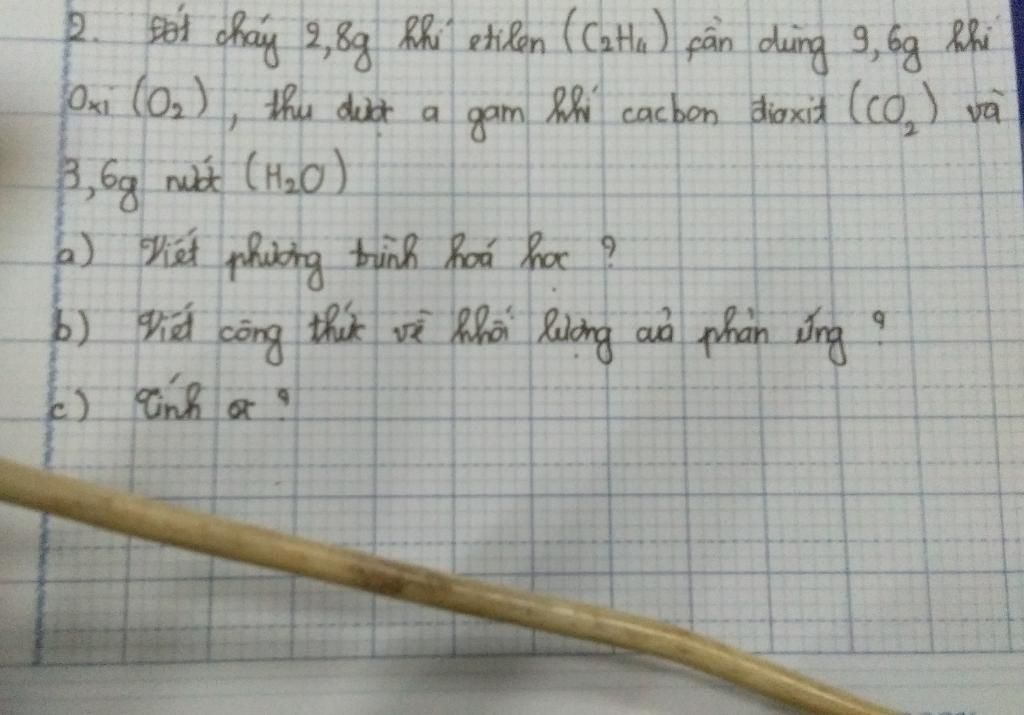 2. Đốt cháy 2,8g khí etilen (C₂H₄) cần dùng 9,6g khí
Oxi (O₂), thu được a gam khí cacbon đioxit (CO₂) và
3,6g nước (H₂O)
a) Viết phương trình hoá học ?
b) Viết công thức về khối lượng của phản ứng ?
c) Tính a ?